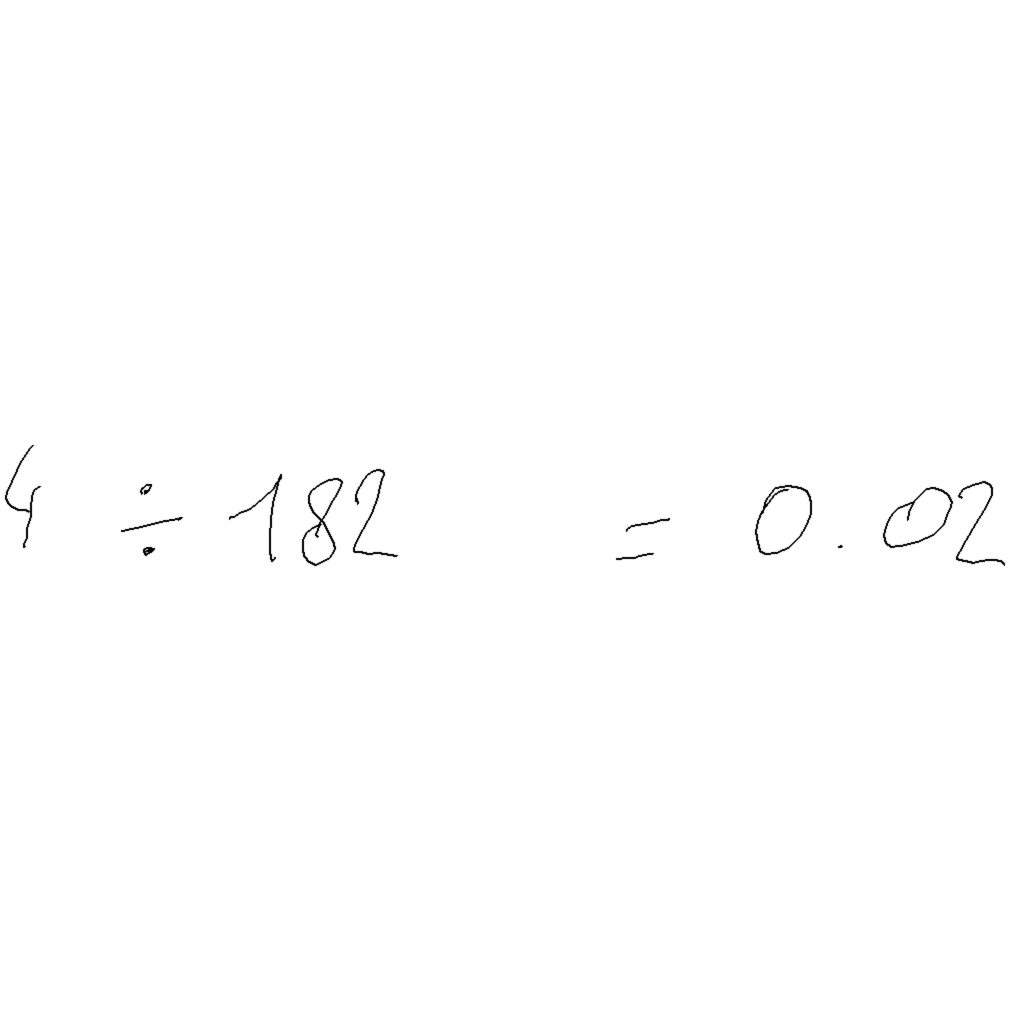 4 ÷ 182 = 0.02